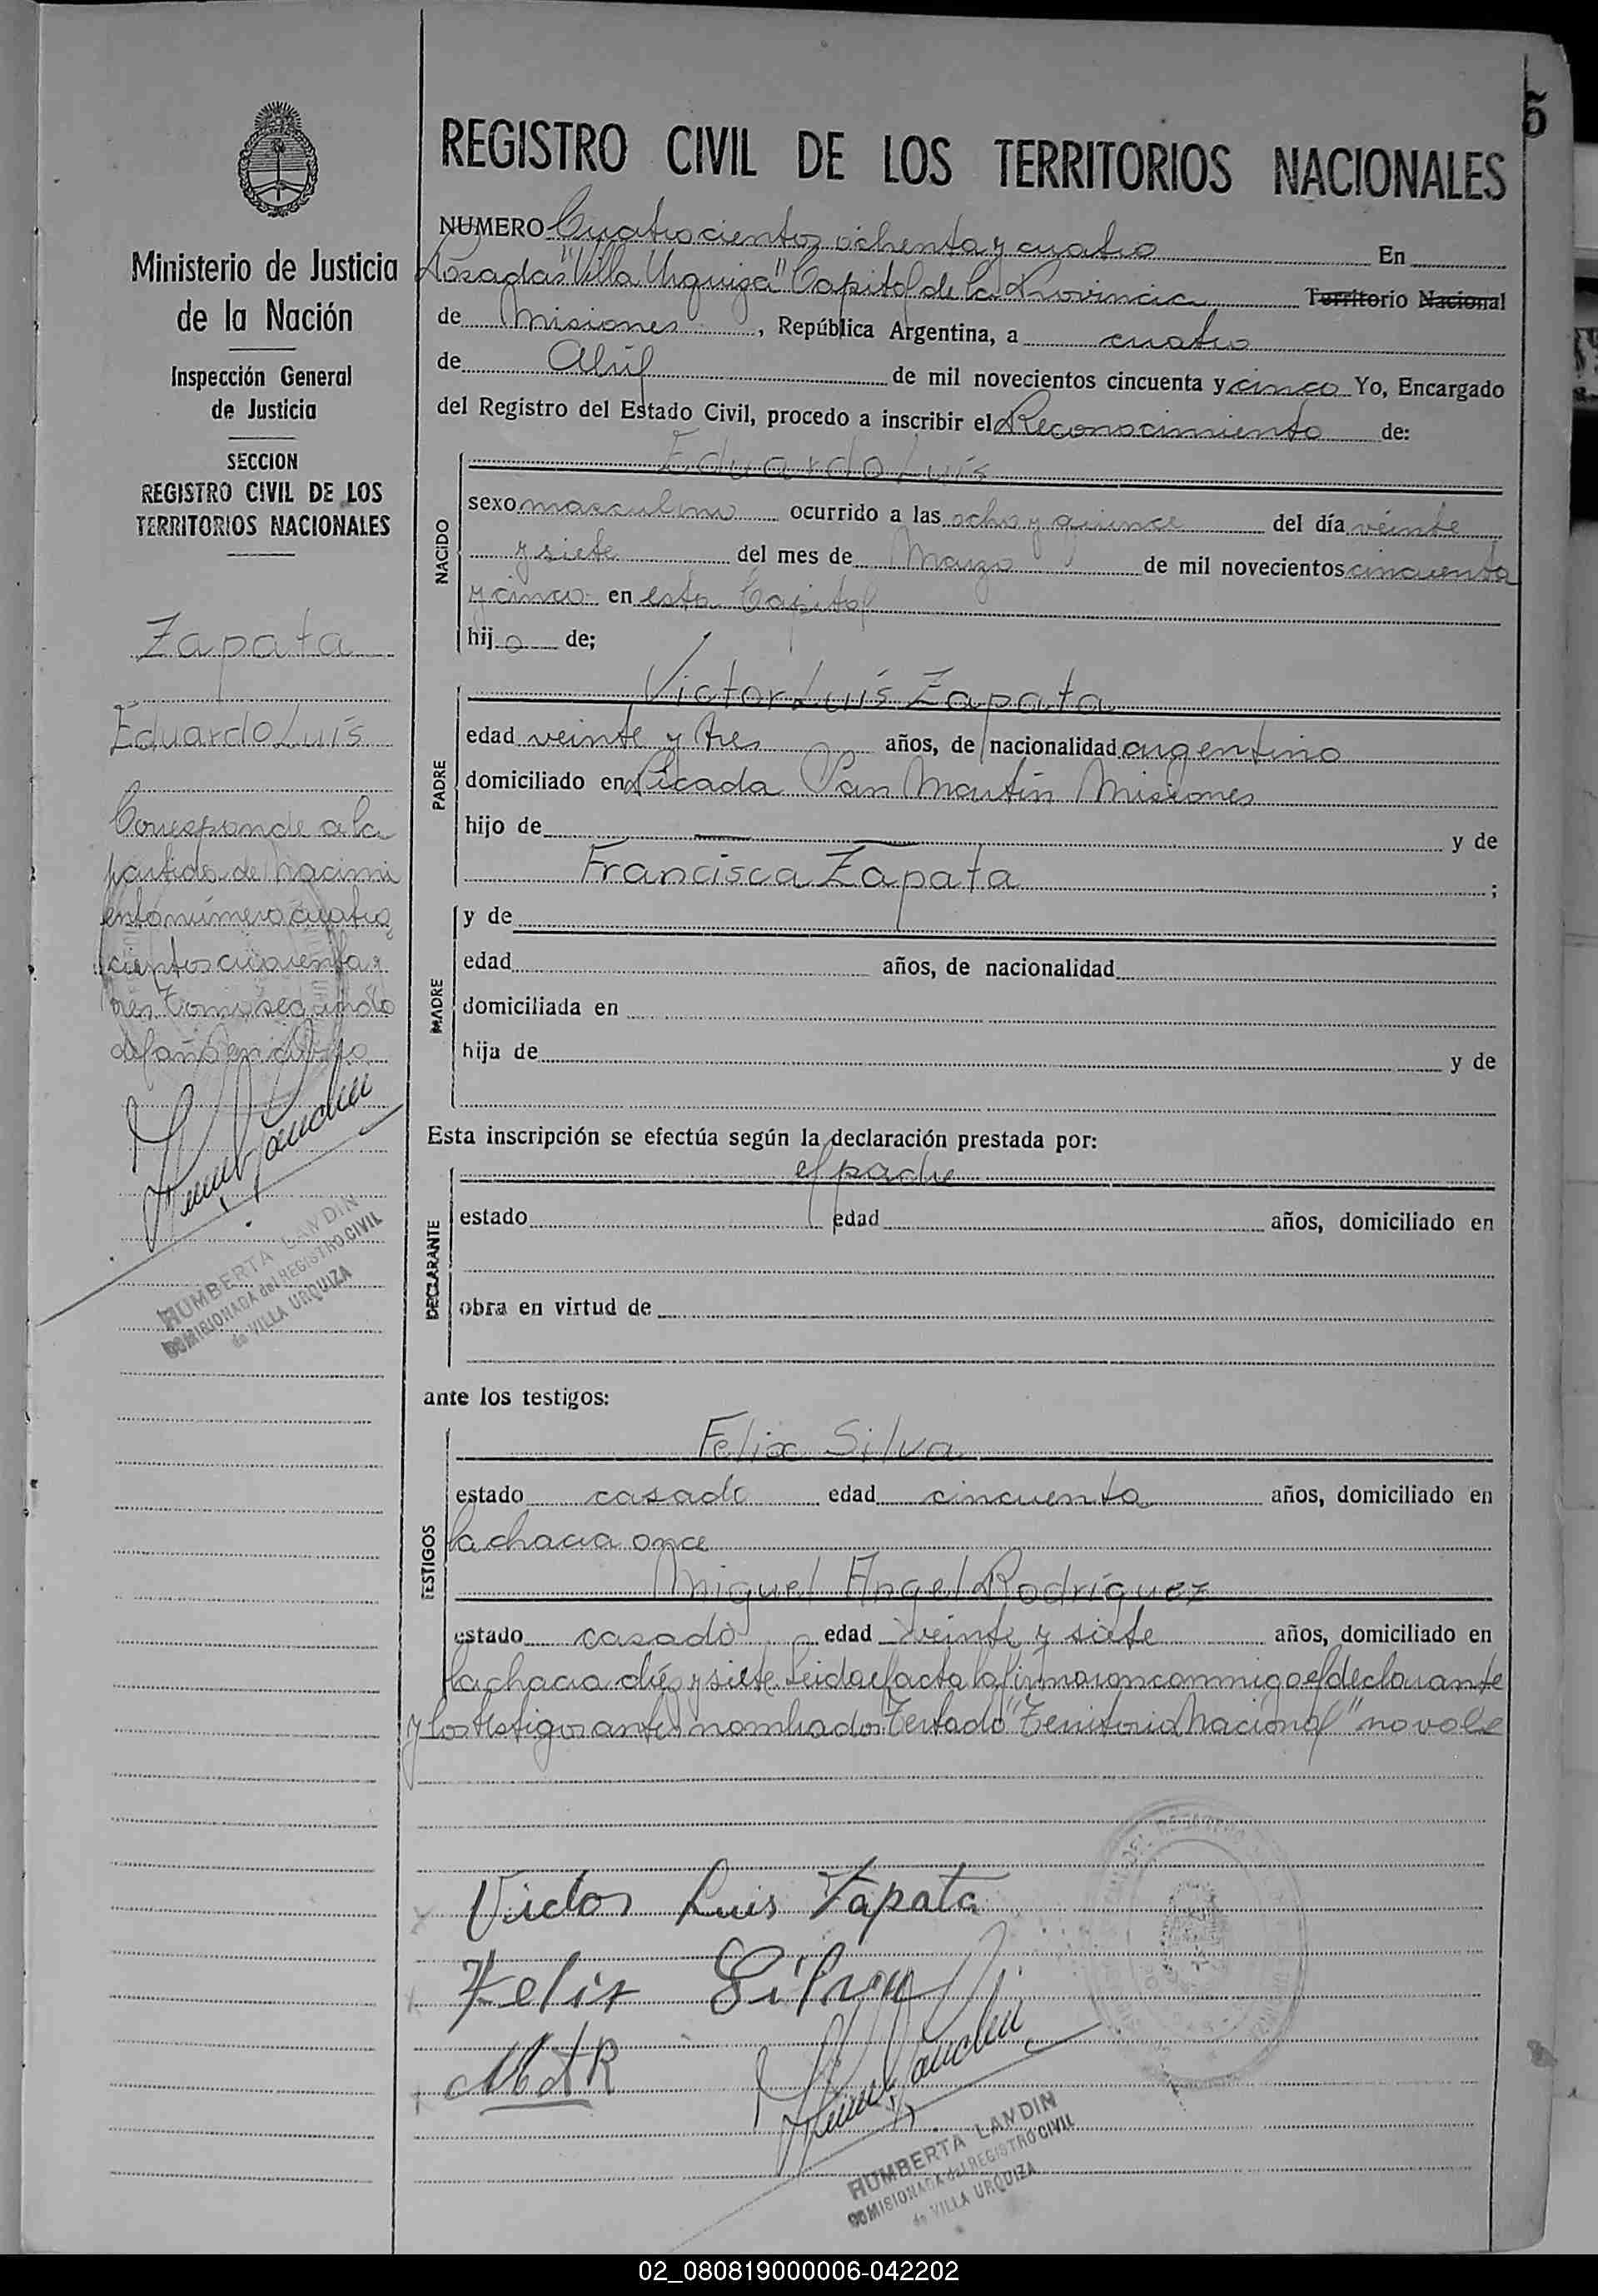 5
REGISTRO CIVIL DE LOS TERRITORIOS NACIONALES
Ministerio de Justicia
de la Nación
Inspección General
de Justicia
SECCION
REGISTRO CIVIL DE LOS
TERRITORIOS NACIONALES
Zapata
Eduardo Luis
Corresponde a la
partida de nacimi
ento número cuatro
cientos cincuenta y
tres tomo segundo
del año en curso
HUMBERTA LANDIN
COMISIONADA del REGISTRO CIVIL
de VILLA URQUIZA
NUMERO Cuatrocientos ochenta y cuatro En
Posadas "Villa Urquiza" Capital de la Provincia Territorio Nacional
de Misiones, República Argentina, a cuatro
de Abril de mil novecientos cincuenta y cinco Yo, Encargado
del Registro del Estado Civil, procedo a inscribir el Reconocimiento de:
NACIDO
Eduardo Luis
sexo masculino ocurrido a las ocho y quince del día veinte
y siete del mes de Marzo de mil novecientos cincuenta
y cinco en esta Capital
hijo de;
PADRE
Victor Luis Zapata
edad veinte y tres años, de nacionalidad argentino
domiciliado en Picada San Martín Misiones
hijo de — y de
Francisca Zapata ;
MADRE
y de
edad años, de nacionalidad
domiciliada en
hija de y de
Esta inscripción se efectúa según la declaración prestada por:
DECLARANTE
el padre
estado edad años, domiciliado en
obra en virtud de
ante los testigos:
TESTIGOS
Felix Silva
estado casado edad cincuenta años, domiciliado en
la chacra once
Miguel Angel Rodríguez
estado casado edad veinte y siete años, domiciliado en
la chacra diez y siete. Leida el acta la firmaron conmigo el declarante
y los testigos antes nombrados. Testado "Territorio Nacional" no vale
Victor Luis Zapata
Felix Silva
MAR
HUMBERTA LANDIN
COMISIONADA del REGISTRO CIVIL
de VILLA URQUIZA
02_080819000006-042202